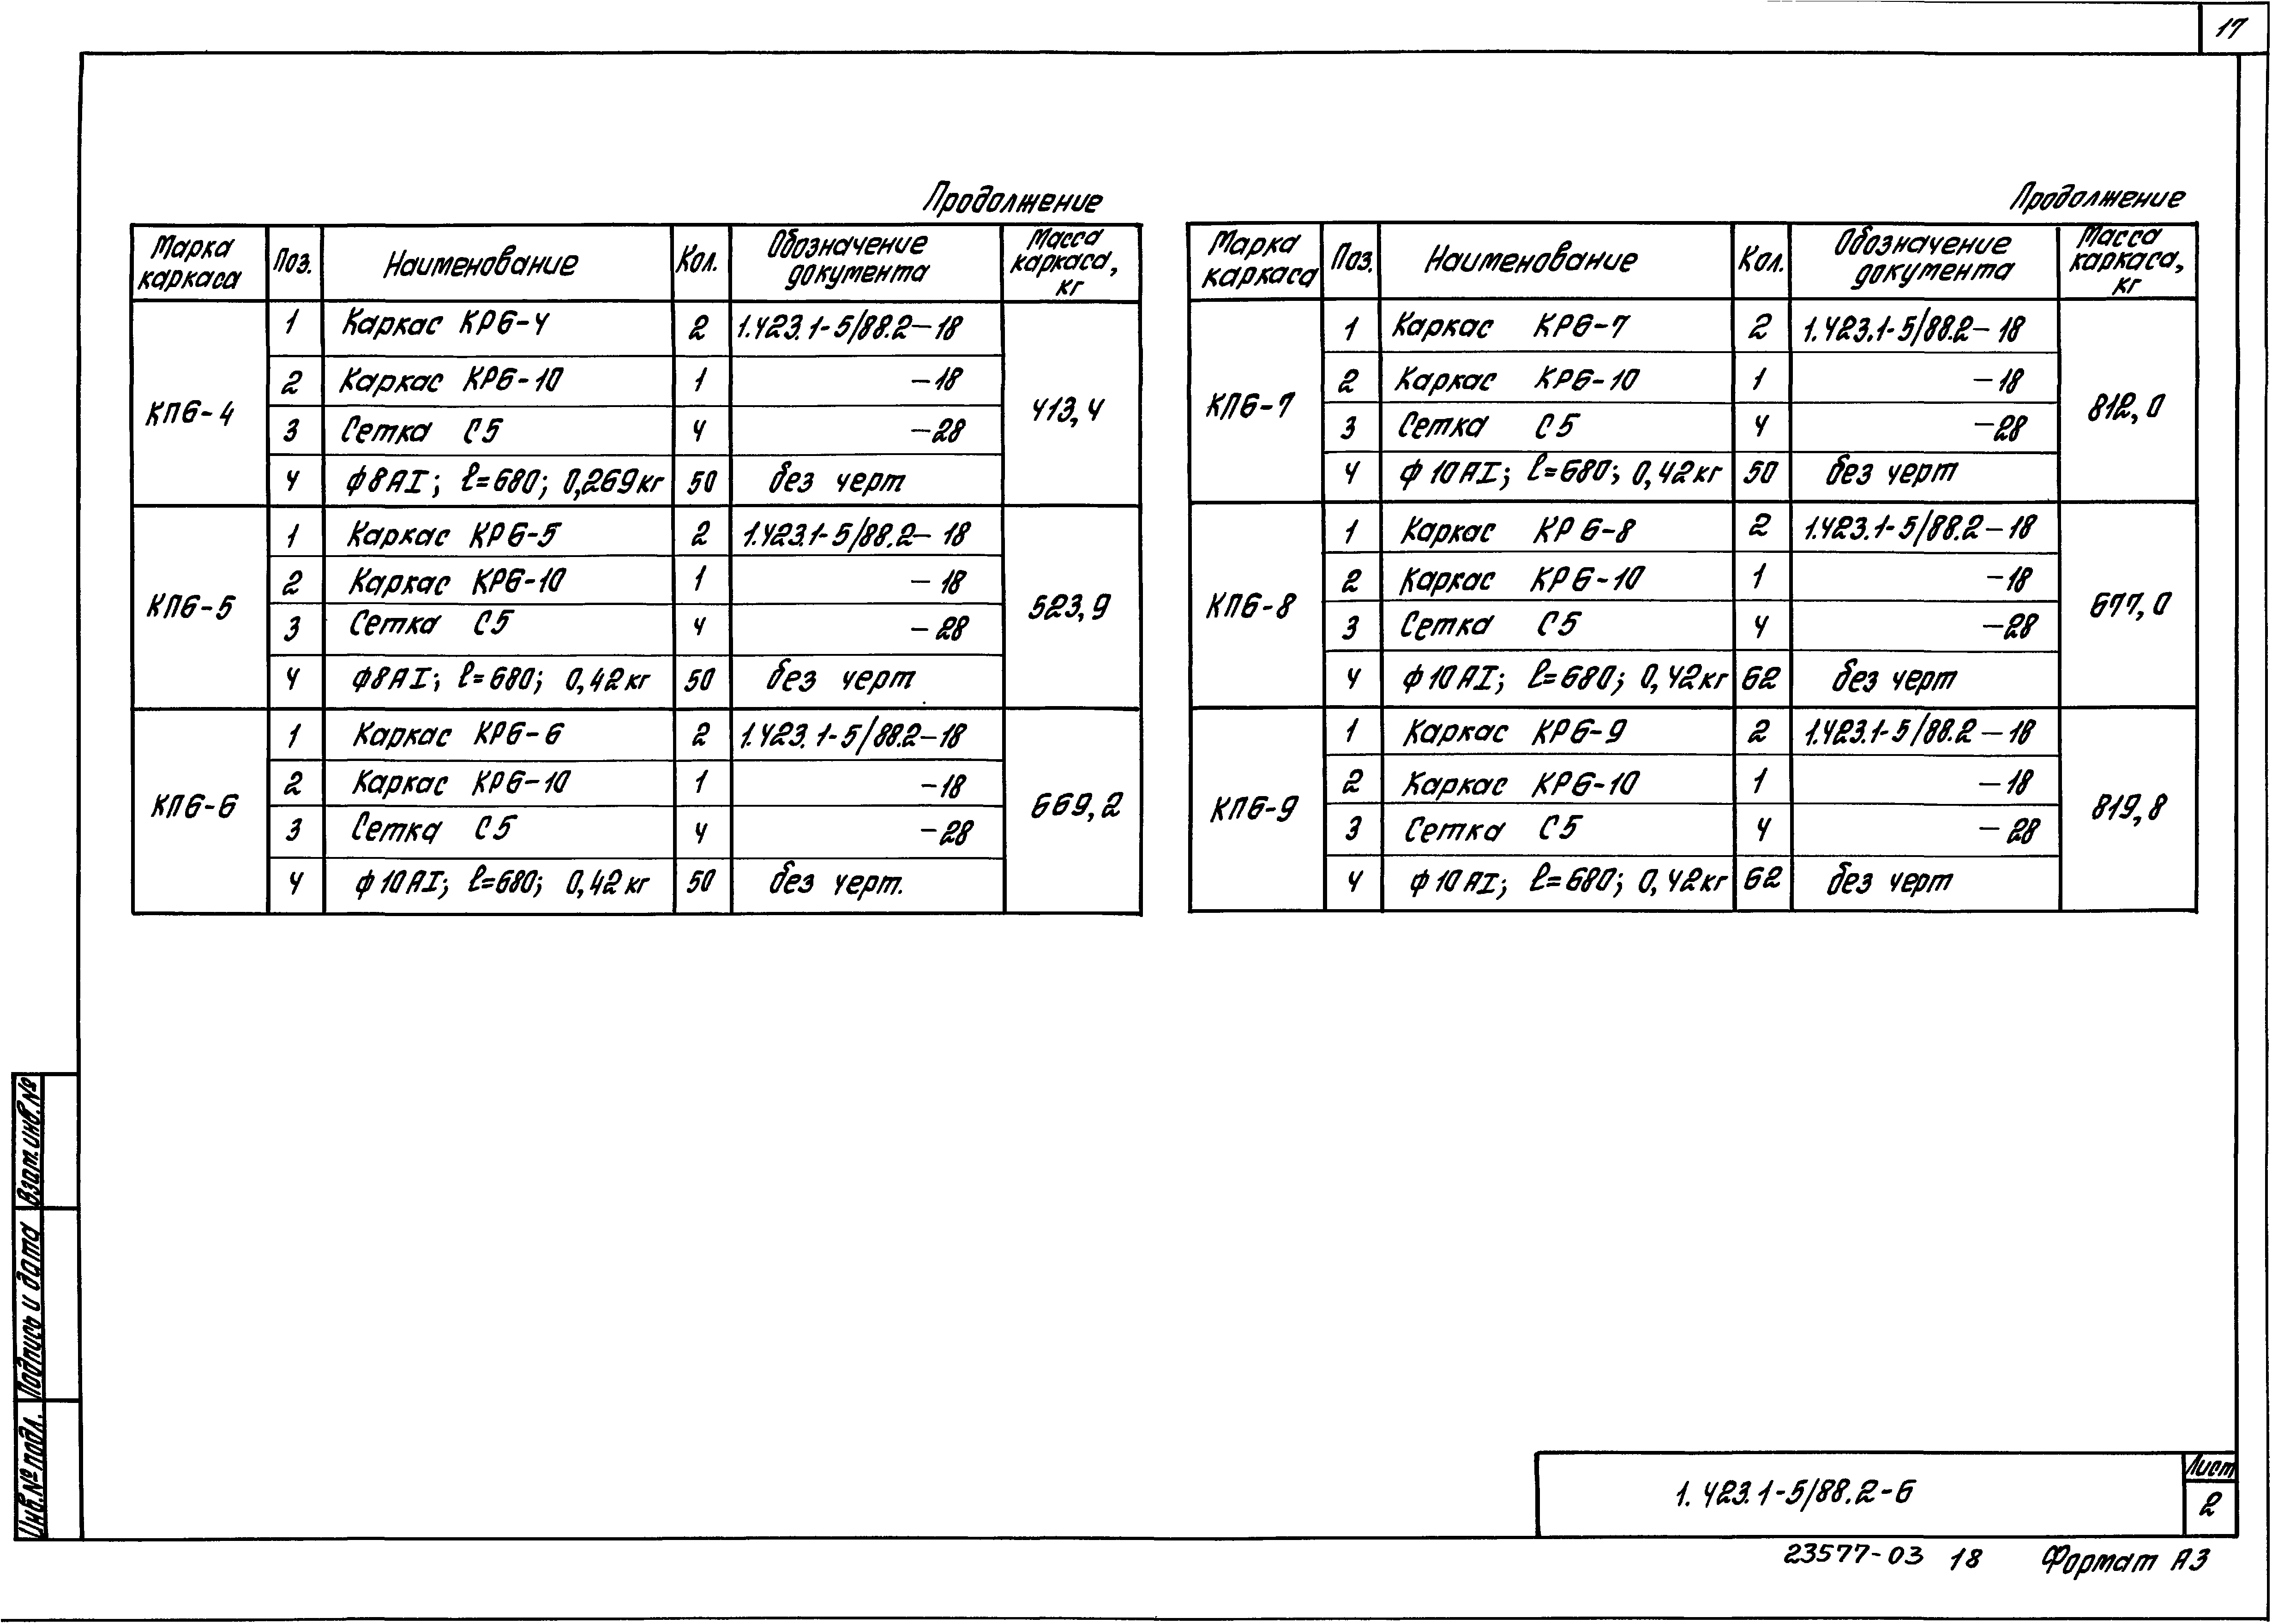 17
Продолжение
Марка каркаса Поз. Наименование Кол. Обозначение документа Масса каркаса, кг
КП6-4 413,4
1 Каркас КР6-4 2 1.423.1-5/88.2-18
2 Каркас КР6-10 1 -18
3 Сетка С5 4 -28
4 ф8АI; ℓ=680; 0,269кг 50 без черт
КП6-5 523,9
1 Каркас КР6-5 2 1.423.1-5/88.2-18
2 Каркас КР6-10 1 -18
3 Сетка С5 4 -28
4 ф8АI; ℓ=680; 0,42кг 50 без черт
КП6-6 669,2
1 Каркас КР6-6 2 1.423.1-5/88.2-18
2 Каркас КР6-10 1 -18
3 Сетка С5 4 -28
4 ф10АI; ℓ=680; 0,42кг 50 без черт.
Продолжение
Марка каркаса Поз. Наименование Кол. Обозначение документа Масса каркаса, кг
КП6-7 812,0
1 Каркас КР6-7 2 1.423.1-5/88.2-18
2 Каркас КР6-10 1 -18
3 Сетка С5 4 -28
4 ф10АI; ℓ=680; 0,42кг 50 без черт
КП6-8 677,0
1 Каркас КР6-8 2 1.423.1-5/88.2-18
2 Каркас КР6-10 1 -18
3 Сетка С5 4 -28
4 ф10АI; ℓ=680; 0,42кг 62 без черт
КП6-9 819,8
1 Каркас КР6-9 2 1.423.1-5/88.2-18
2 Каркас КР6-10 1 -18
3 Сетка С5 4 -28
4 ф10АI; ℓ=680; 0,42кг 62 без черт
Взам.инв.№
Подпись и дата
Инв.№ подл.
1.423.1-5/88.2-6
Лист
2
23577-03 18 Формат А3